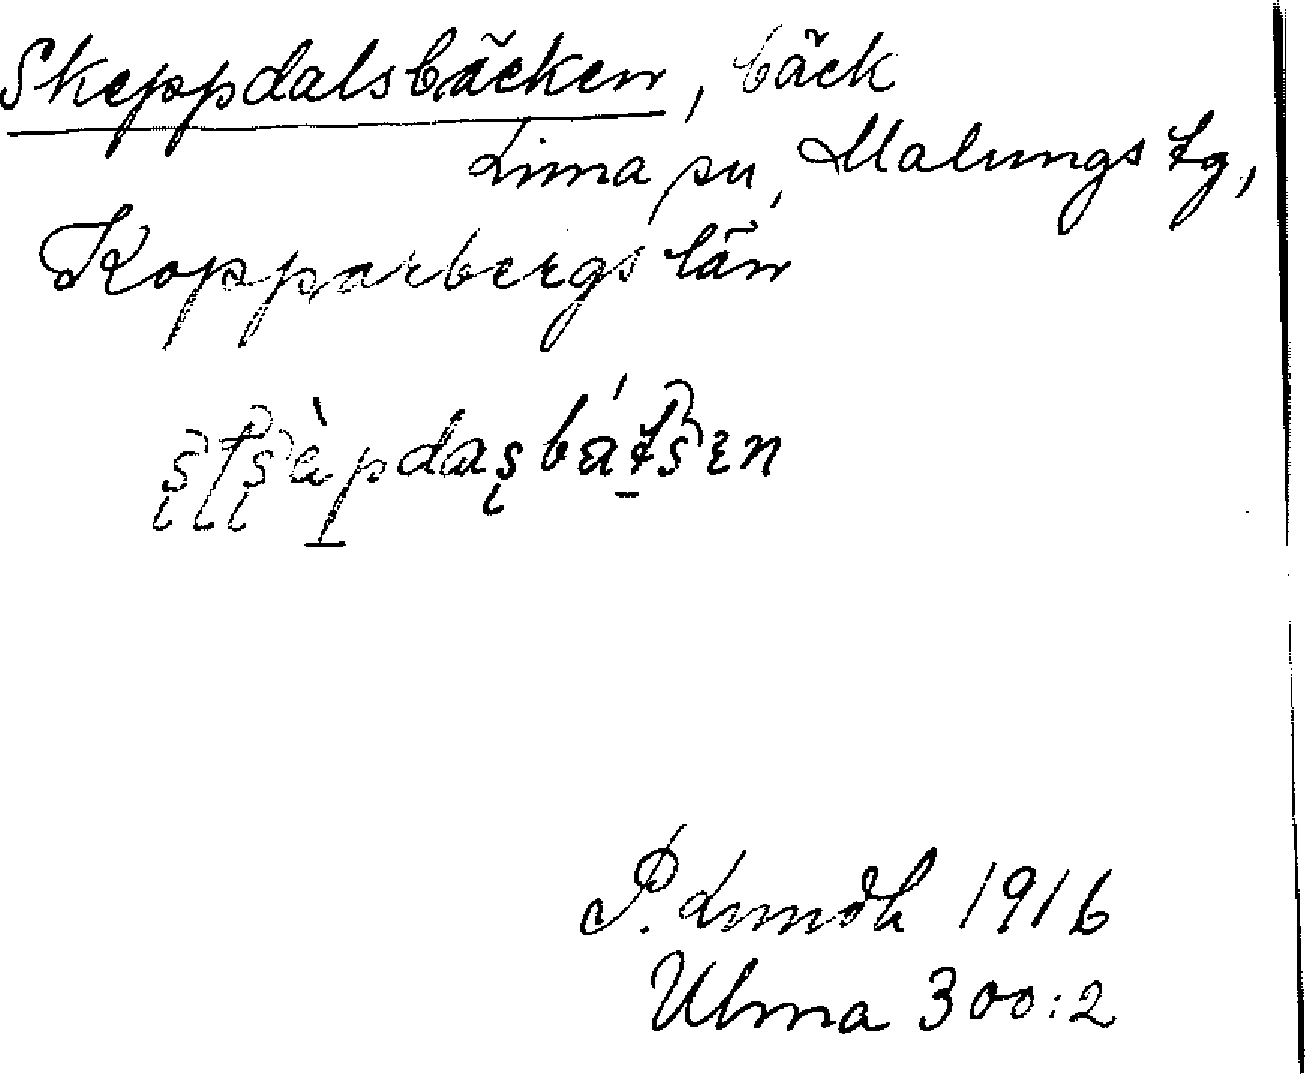 Skeppdalsbäcken, bäck
Lima sn, Malungs tg,
Kopparbergs län
P. Lundh 1916
Ulma 300:2